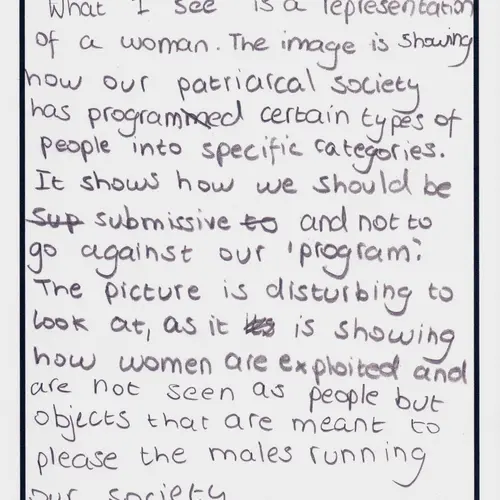 What I see is a representation
of a woman. The image is showing
how our patriarcal society
has programmed certain types of
people into specific categories.
It shows how we should be
sup submissive to and not to
go against our 'program'.
The picture is disturbing to
look at, as it is showing
how women are exploited and
are not seen as people but
objects that are meant to
please the males running
our society